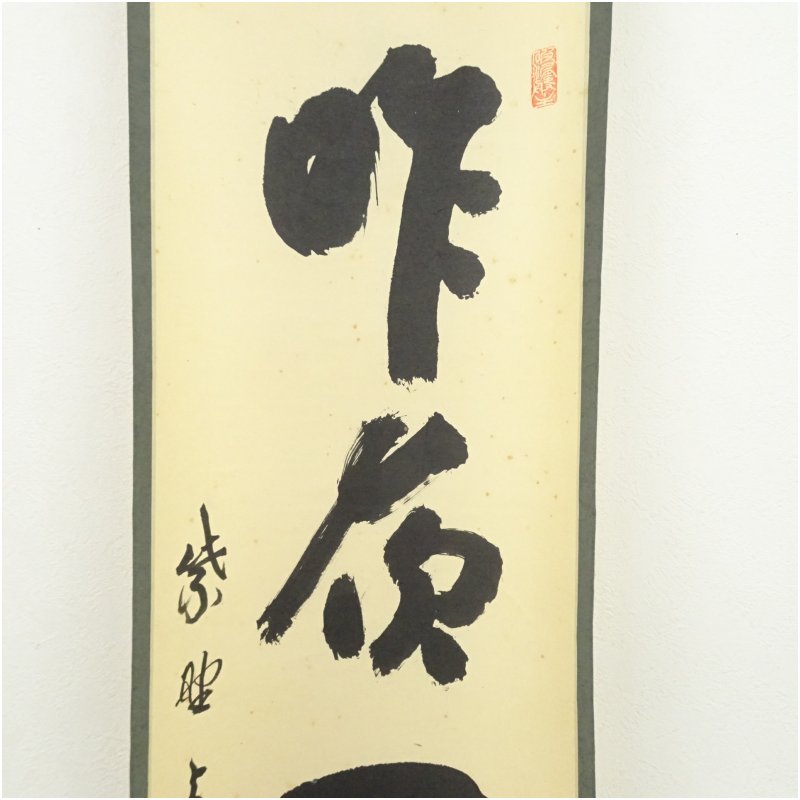 昨夜
紫野